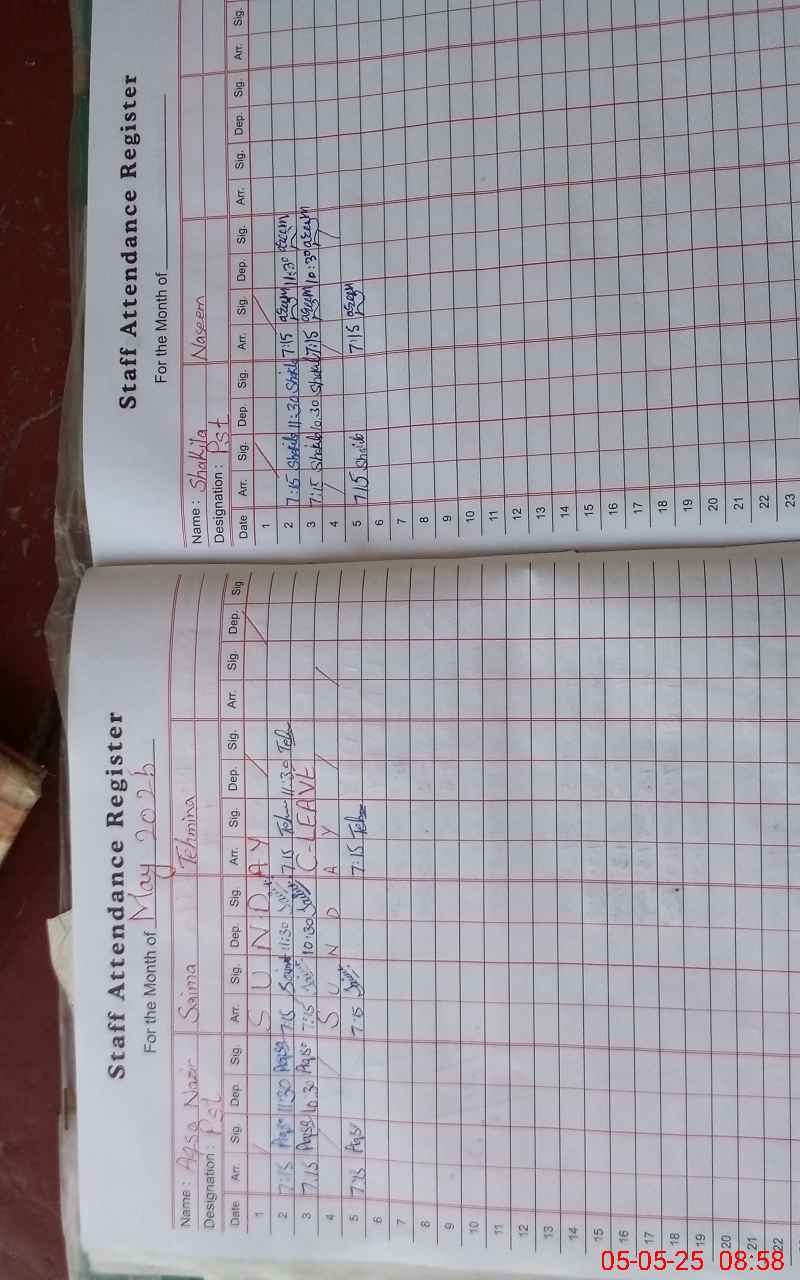 Staff Attendance Register
For the Month of May 2025
Name : Aqsa Nazir Saima Tehmina
Designation : Pst
Date Arr. Sig. Dep. Sig. Arr. Sig. Dep. Sig. Arr. Sig. Dep. Sig. Arr. Sig. Dep. Sig.
1 S U N D A Y
2 7:15 Aqsa 11:30 Aqsa 7:15 Saima 11:30 7:15 11:30
3 7:15 Aqsa 10:30 Aqsa 7:15 10:30 C-LEAVE
4 S U N D A Y
5 7:15 Aqsa 7:15 7:15
6
7
8
9
10
11
12
13
14
15
16
17
18
19
20
21
22
Staff Attendance Register
For the Month of
Name : Shakila Naseem
Designation : Pst
Date Arr. Sig. Dep. Sig. Arr. Sig. Dep. Sig. Arr. Sig. Dep. Sig. Arr. Sig.
1
2 7:15 11:30 7:15 11:30
3 7:15 10:30 7:15 10:30
4
5 7:15 7:15
6
7
8
9
10
11
12
13
14
15
16
17
18
19
20
21
22
23
05-05-25 08:58